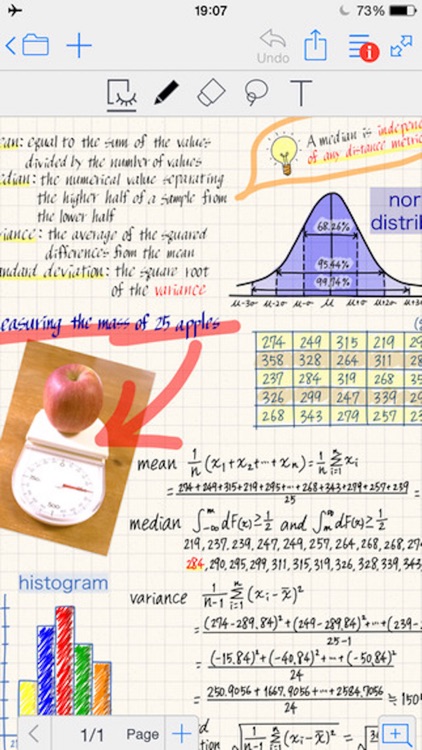 19:07
73%
Undo
T
ean: equal to the sum of the values
divided by the number of values
edian: the numerical value separating
the higher half of a sample from
the lower half
riance: the average of the squared
differences from the mean
andard deviation: the square root
of the variance
A median is indepen
of any distance metric
nor
distrib
68.26%
95.44%
99.74%
μ-3σ μ-2σ μ-σ μ μ+σ μ+2σ μ+3σ
easuring the mass of 25 apples
274 249 315 219 29
358 328 264 311 28
237 284 319 268 35
326 299 247 339 29
268 343 279 257 23
mean 1/n (x₁+x₂+⋯+xₙ) = 1/n Σⁿᵢ₌₁ xᵢ
= 274+249+315+219+295+⋯+268+343+279+257+239 / 25 =
median ∫ᵐ₋∞ dF(x) ≥ 1/2 and ∫ dF(x) ≥ 1/2
219, 237, 239, 247, 249, 257, 264, 268, 268, 274
284, 290, 295, 299, 311, 315, 319, 326, 328, 339, 343
histogram
variance 1/n-1 Σⁿᵢ₌₁ (xᵢ - x̄)²
= (274-289.84)² + (249-289.84)² + ⋯ + (239- / 25-1
= (-15.84)² + (-40.84)² + ⋯ + (-50.84)² / 24
= 250.9056 + 1667.9056 + ⋯ + 2584.7056 / 24 ≒ 150
1/1 Page
√ 1/n-1 Σⁿᵢ₌₁ (xᵢ - x̄)² =